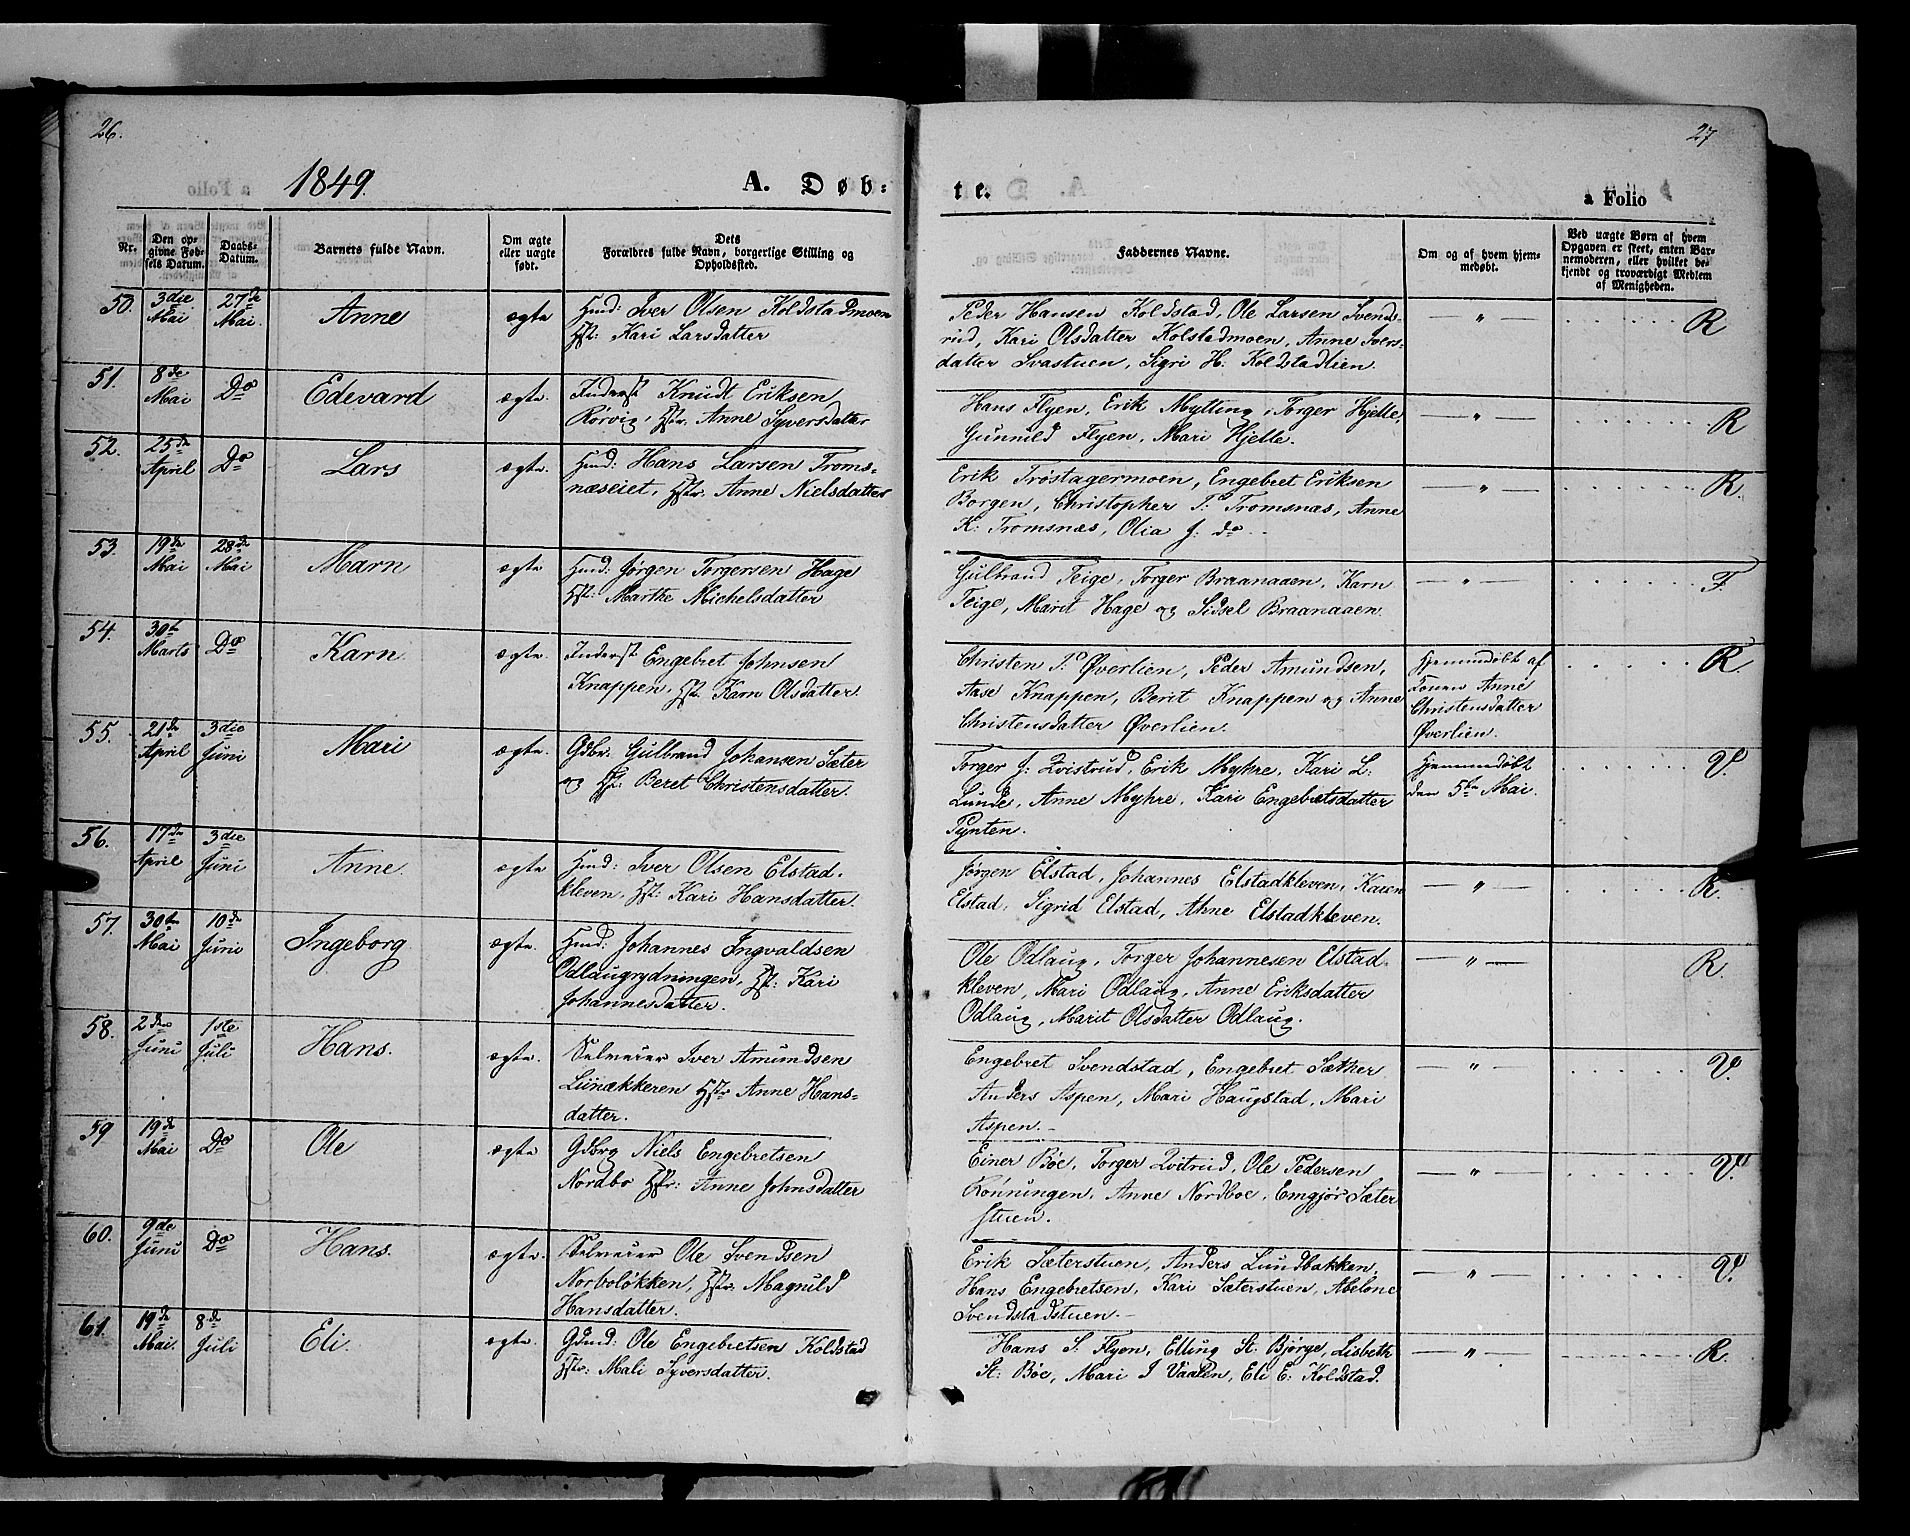 26.
1849.
A. Døb-
Nr.
Den opgivne Fødsels Datum.
Daabs-Datum.
Barnets fulde Navn.
Om ægte eller uægte født.
Dets Forældres fulde Navn, borgerlige Stilling og Opholdssted.
50. 3die Mai 27de Mai. Anne ægte Hmd: Iver Olsen Koldstadmoen
Hst: Kari Larsdatter
51. 8de Mai Do Edevard ægte. Inderst Knudt Eriksen
Rörvig, Hstr. Anne Syversdatter
52. 25de April Do Lars ægte. Hmd: Hans Larsen Troms-
næseiet, Hstr. Anne Nielsdatter
53. 19de Mai 28de Mai Marn ægte Hmd: Jørgen Torgersen Hage
Hst: Marthe Michelsdatter
54. 30te Marts Do Karn ægte. Inderst Engebret Johnsen
Knappen, Hst: Karn Olsdatter.
55. 21de April 3die Juni Mari ægte. Gdbr. Gulbrand Johansen Sæter
og Hst: Beret Christensdatter.
56. 17de April 3die Juni Anne. ægte Hmd: Iver Olsen Elstad-
kleven, Hst: Kari Hansdatter.
57. 30te Mai 10de Juni Ingeborg ægte. Hmd: Johannes Ingvaldsen
Odlaugrydningen, Hst: Kari
Johannesdatter.
58. 2den Juni 1ste Juli Hans. ægte. Selveier Iver Amundsen
Lünækkeren Hstr Anne Hans-
datter.
59 19de Mai Do Ole ægte. Gdbrg Niels Engebretsen
Nordbo Hstr: Anne Johnsdatter
60. 9de Juni Do Hans. ægte. Selveier Ole Svendsen
Norboløkken, Hstr. Magnild
Hansdatter.
61. 19de Mai. 8de Juli Eli ægte. Gdmd: Ole Engebretsen Koldstad
Hstr: Mali Syversdatter.
27
te.
a Folio
Faddernes Navne.
Om og af hvem hjemmedøbt.
Ved uægte Børn af hvem Opgaven er skeet, enten Barnemoderen, eller hvilket bekjendt og troværdigt Medlem af Menigheden.
Peder Hansen Koldstad, Ole Larsen Svends- — " — R
rud, Kari Olsdatter Kolstadmoen, Anne Ivers-
datter Svastuen, Sigri H. Koldstadlien.
Hans Flyen, Erik Mytting, Torger Hjelle, — " — R
Gunnild Flyen, Mari Hjelle.
Erik Trøstagermoen, Engebret Eriksen — " — R.
Borgen, Christopher P: Tromsnæs, Anne
K: Tromsnæs, Olia J: do
Gulbrand Teige, Torger Braanaaen, Karn — " — F.
Teige, Marit Hage og Sidsel Braanaaen.
Christen P. Øverlien, Peder Amundsen, Hjemmdøbt af R.
Aase Knappen, Berit Knappen og Anne Konen Anne
Christensdatter Øverlien. Christensdatter
Øverlien.
Torger J: Qvistrud, Erik Myhre, Kari L: Hjemmedøbt V.
Lunde, Anne Myhre, Kari Engebretsdatter den 5te Mai.
Pynten.
Jørgen Elstad, Johannes Elstadkleven, Karen — " — R.
Elstad, Sigrid Elstad, Anne Elstadkleven.
Ole Odlaug, Torger Johannesen Elstad- — " — R.
kleven, Mari Odlaug, Anne Eriksdatter
Odlaug, Marit Olsdatter Odlaug.
Engebret Svendstad, Engebret Sæther — " — V.
Anders Aspen, Mari Haugstad, Mari
Aspen.
Einer Böe, Torger Qvitrud, Ole Pedersen — " — V.
Rönningen, Anne Nordboe, Emgjør Sæter
stuen.
Erik Sæterstuen, Anders Lundbakken, — " — V.
Hans Engebretsen, Kari Sæterstuen, Abelone
Svendstadstuen.
Hans S. Flyen, Elling St. Bjørge, Lisbeth — " — R.
St. Böe, Mari I Vaalen, Eli E: Koldstad.